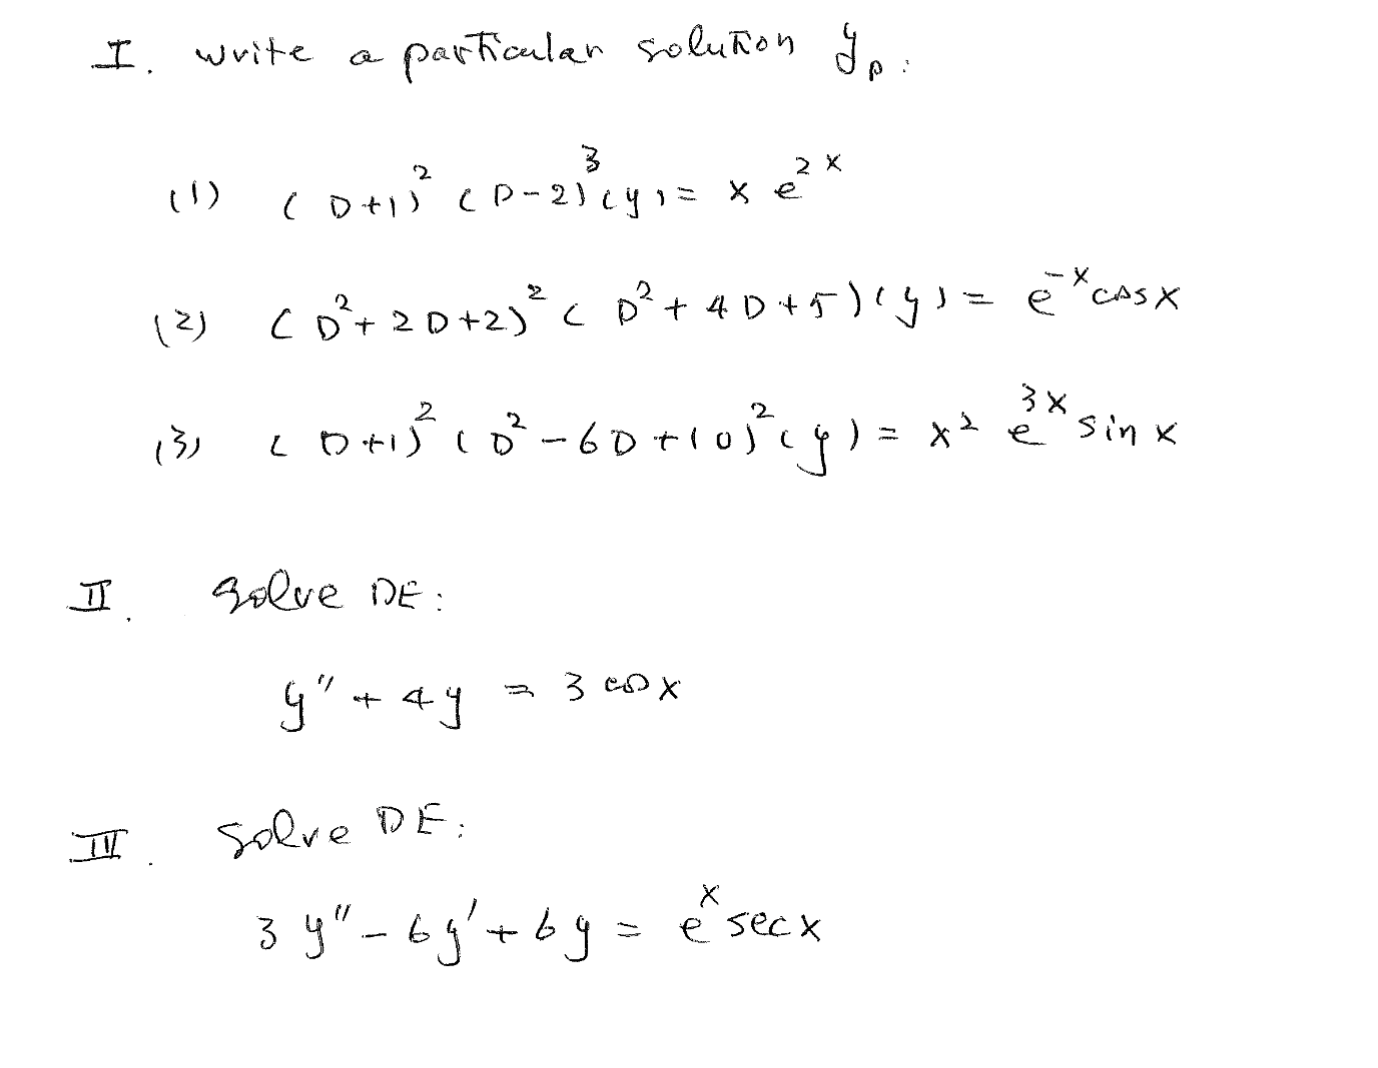 I. write a particular solution y_p:
(1) (D+1)^2 (D-2)^3 (y) = x e^{2x}
(2) (D^2+2D+2)^2 (D^2+4D+5)(y) = e^{-x} cos x
(3) (D+1)^2 (D^2-6D+10)^2 (y) = x^2 e^{3x} sin x
II. Solve DE:
y'' + 4y = 3 cos x
III. Solve DE:
3y'' - 6y' + 6y = e^x sec x